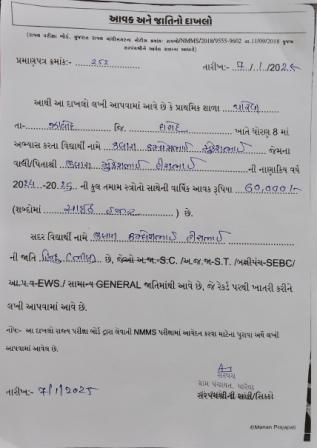 આવક અને જાતિનો દાખલો
(રાજ્ય પરીક્ષા બોર્ડ, ગુજરાત રાજ્ય ગાંધીનગરના નોટીસ ક્રમાંક: રાપબો/NMMS/2018/9555-9602 તા.11/09/2018 મુજબ
સરપંચશ્રીને આવેલ સત્તાના આધારે)
પ્રમાણપત્ર ક્રમાંક:- 252 તારીખ:- 7/1/2025
આથી આ દાખલો લખી આપવામાં આવે છે કે પ્રાથમિક શાળા
તા- જી. ખાતે ધોરણ 8 માં
અભ્યાસ કરતા વિદ્યાર્થી નામે જેમના
વાલી/પિતાશ્રી ની નાણાકિય વર્ષ
2024-2025 ની કુલ તમામ સ્ત્રોતો સાથેની વાર્ષિક આવક રૂપિયા 60,000/-
(શબ્દોમાં હજાર ) છે.
સદર વિદ્યાર્થી નામે
ની જાતિ હિન્દુ છે, જેઓ અ.જા.-S.C. /અ.જ.જા-S.T. /બક્ષીપંચ-SEBC/
આ.પ.વ-EWS./ સામાન્ય GENERAL જાતિમાંથી આવે છે, જે રેકર્ડ પરથી ખાતરી કરીને
લખી આપવામાં આવે છે.
નોંધ:- આ દાખલો રાજ્ય પરીક્ષા બોર્ડ દ્વારા લેવાની NMMS પરીક્ષામાં આવેદન કરવા માટેના પુરાવા અર્થે લખી
આપવામાં આવેલ છે.
તારીખ:- 7/1/2025
સરપંચ
ગ્રામ પંચાયત,
સરપંચશ્રીની સહી/સિક્કો
©Manan Prajapati